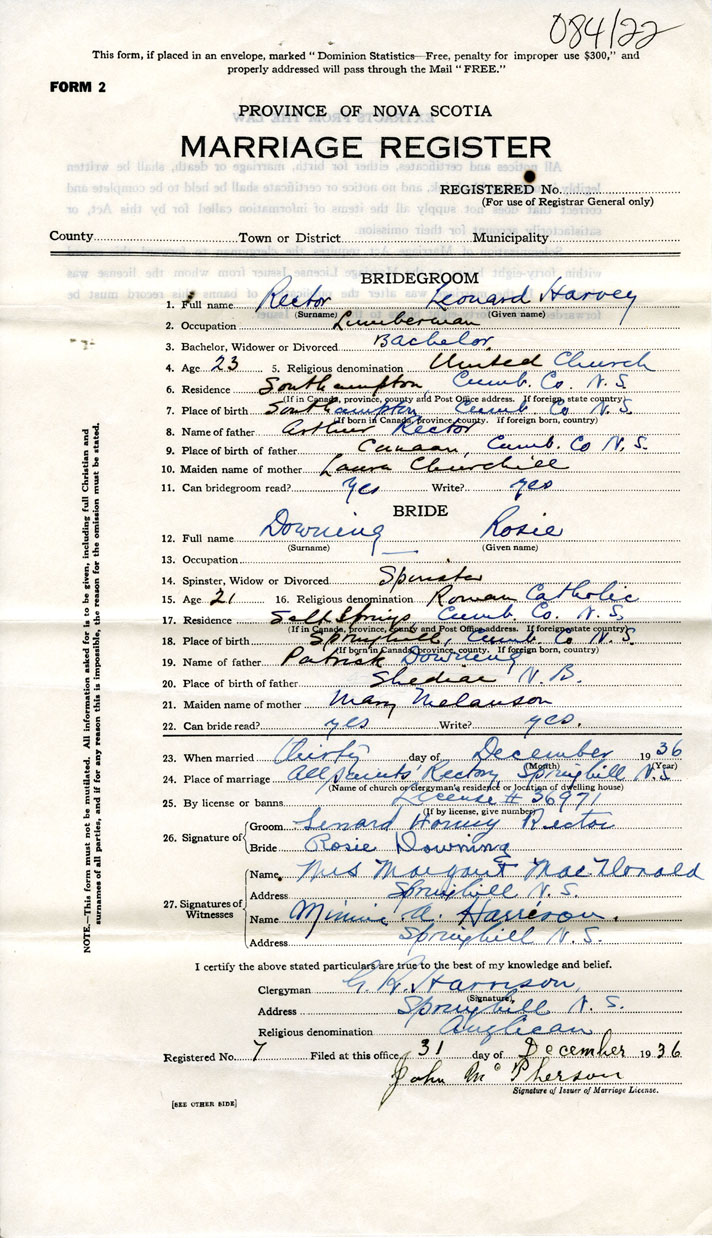 084/22
This form, if placed in an envelope, marked "Dominion Statistics—Free, penalty for improper use $300," and
properly addressed will pass through the Mail "FREE."
FORM 2
PROVINCE OF NOVA SCOTIA
MARRIAGE REGISTER
REGISTERED No.
(For use of Registrar General only)
County Town or District Municipality
BRIDEGROOM
1. Full name Rector Leonard Harvey
(Surname) (Given name)
2. Occupation Lumberman
3. Bachelor, Widower or Divorced Bachelor
4. Age 23 5. Religious denomination United Church
6. Residence Southampton, Cumb. Co. N.S.
(If in Canada, province, county and Post Office address. If foreign state country)
7. Place of birth Southampton Cumb. Co N.S.
(If born in Canada, province, county. If foreign born, country)
8. Name of father Arthur Rector
9. Place of birth of father Canaan, Cumb. Co N.S.
10. Maiden name of mother Laura Churchill
11. Can bridegroom read? Yes Write? yes
BRIDE
12. Full name Downing Rosie
(Surname) (Given name)
13. Occupation
14. Spinster, Widow or Divorced Spinster
15. Age 21 16. Religious denomination Roman Catholic
17. Residence Salt Springs Cumb. Co. N.S.
(If in Canada, province, county and Post Office address. If foreign state country)
18. Place of birth Springhill, Cumb. Co N.S.
(If born in Canada, province, county. If foreign born, country)
19. Name of father Patrick Downing
20. Place of birth of father Shediac N.B.
21. Maiden name of mother Mary Melanson
22. Can bride read? yes Write? yes.
23. When married Thirty day of December 1936
(Month) (Year)
24. Place of marriage All Saints' Rectory, Springhill N.S.
(Name of church or clergyman's residence or location of dwelling house)
25. By license or banns License # 36971
(If by license, give number)
26. Signature of Groom Lenard Harvey Rector
Bride Rosie Downing
27. Signatures of Witnesses Name Mrs Margaret MacDonald
Address Springhill N.S.
Name Minnie A. Harrison.
Address Springhill N.S.
I certify the above stated particulars are true to the best of my knowledge and belief.
Clergyman Harrison,
(Signature)
Address Springhill N.S.
Religious denomination Anglican
Registered No. 7 Filed at this office 31 day of December 1936
John McPherson
Signature of Issuer of Marriage License.
[SEE OTHER SIDE]
NOTE.—This form must not be mutilated. All information asked for is to be given, including full Christian and
surnames of all parties, and if for any reason this is impossible, the reason for the omission must be stated.